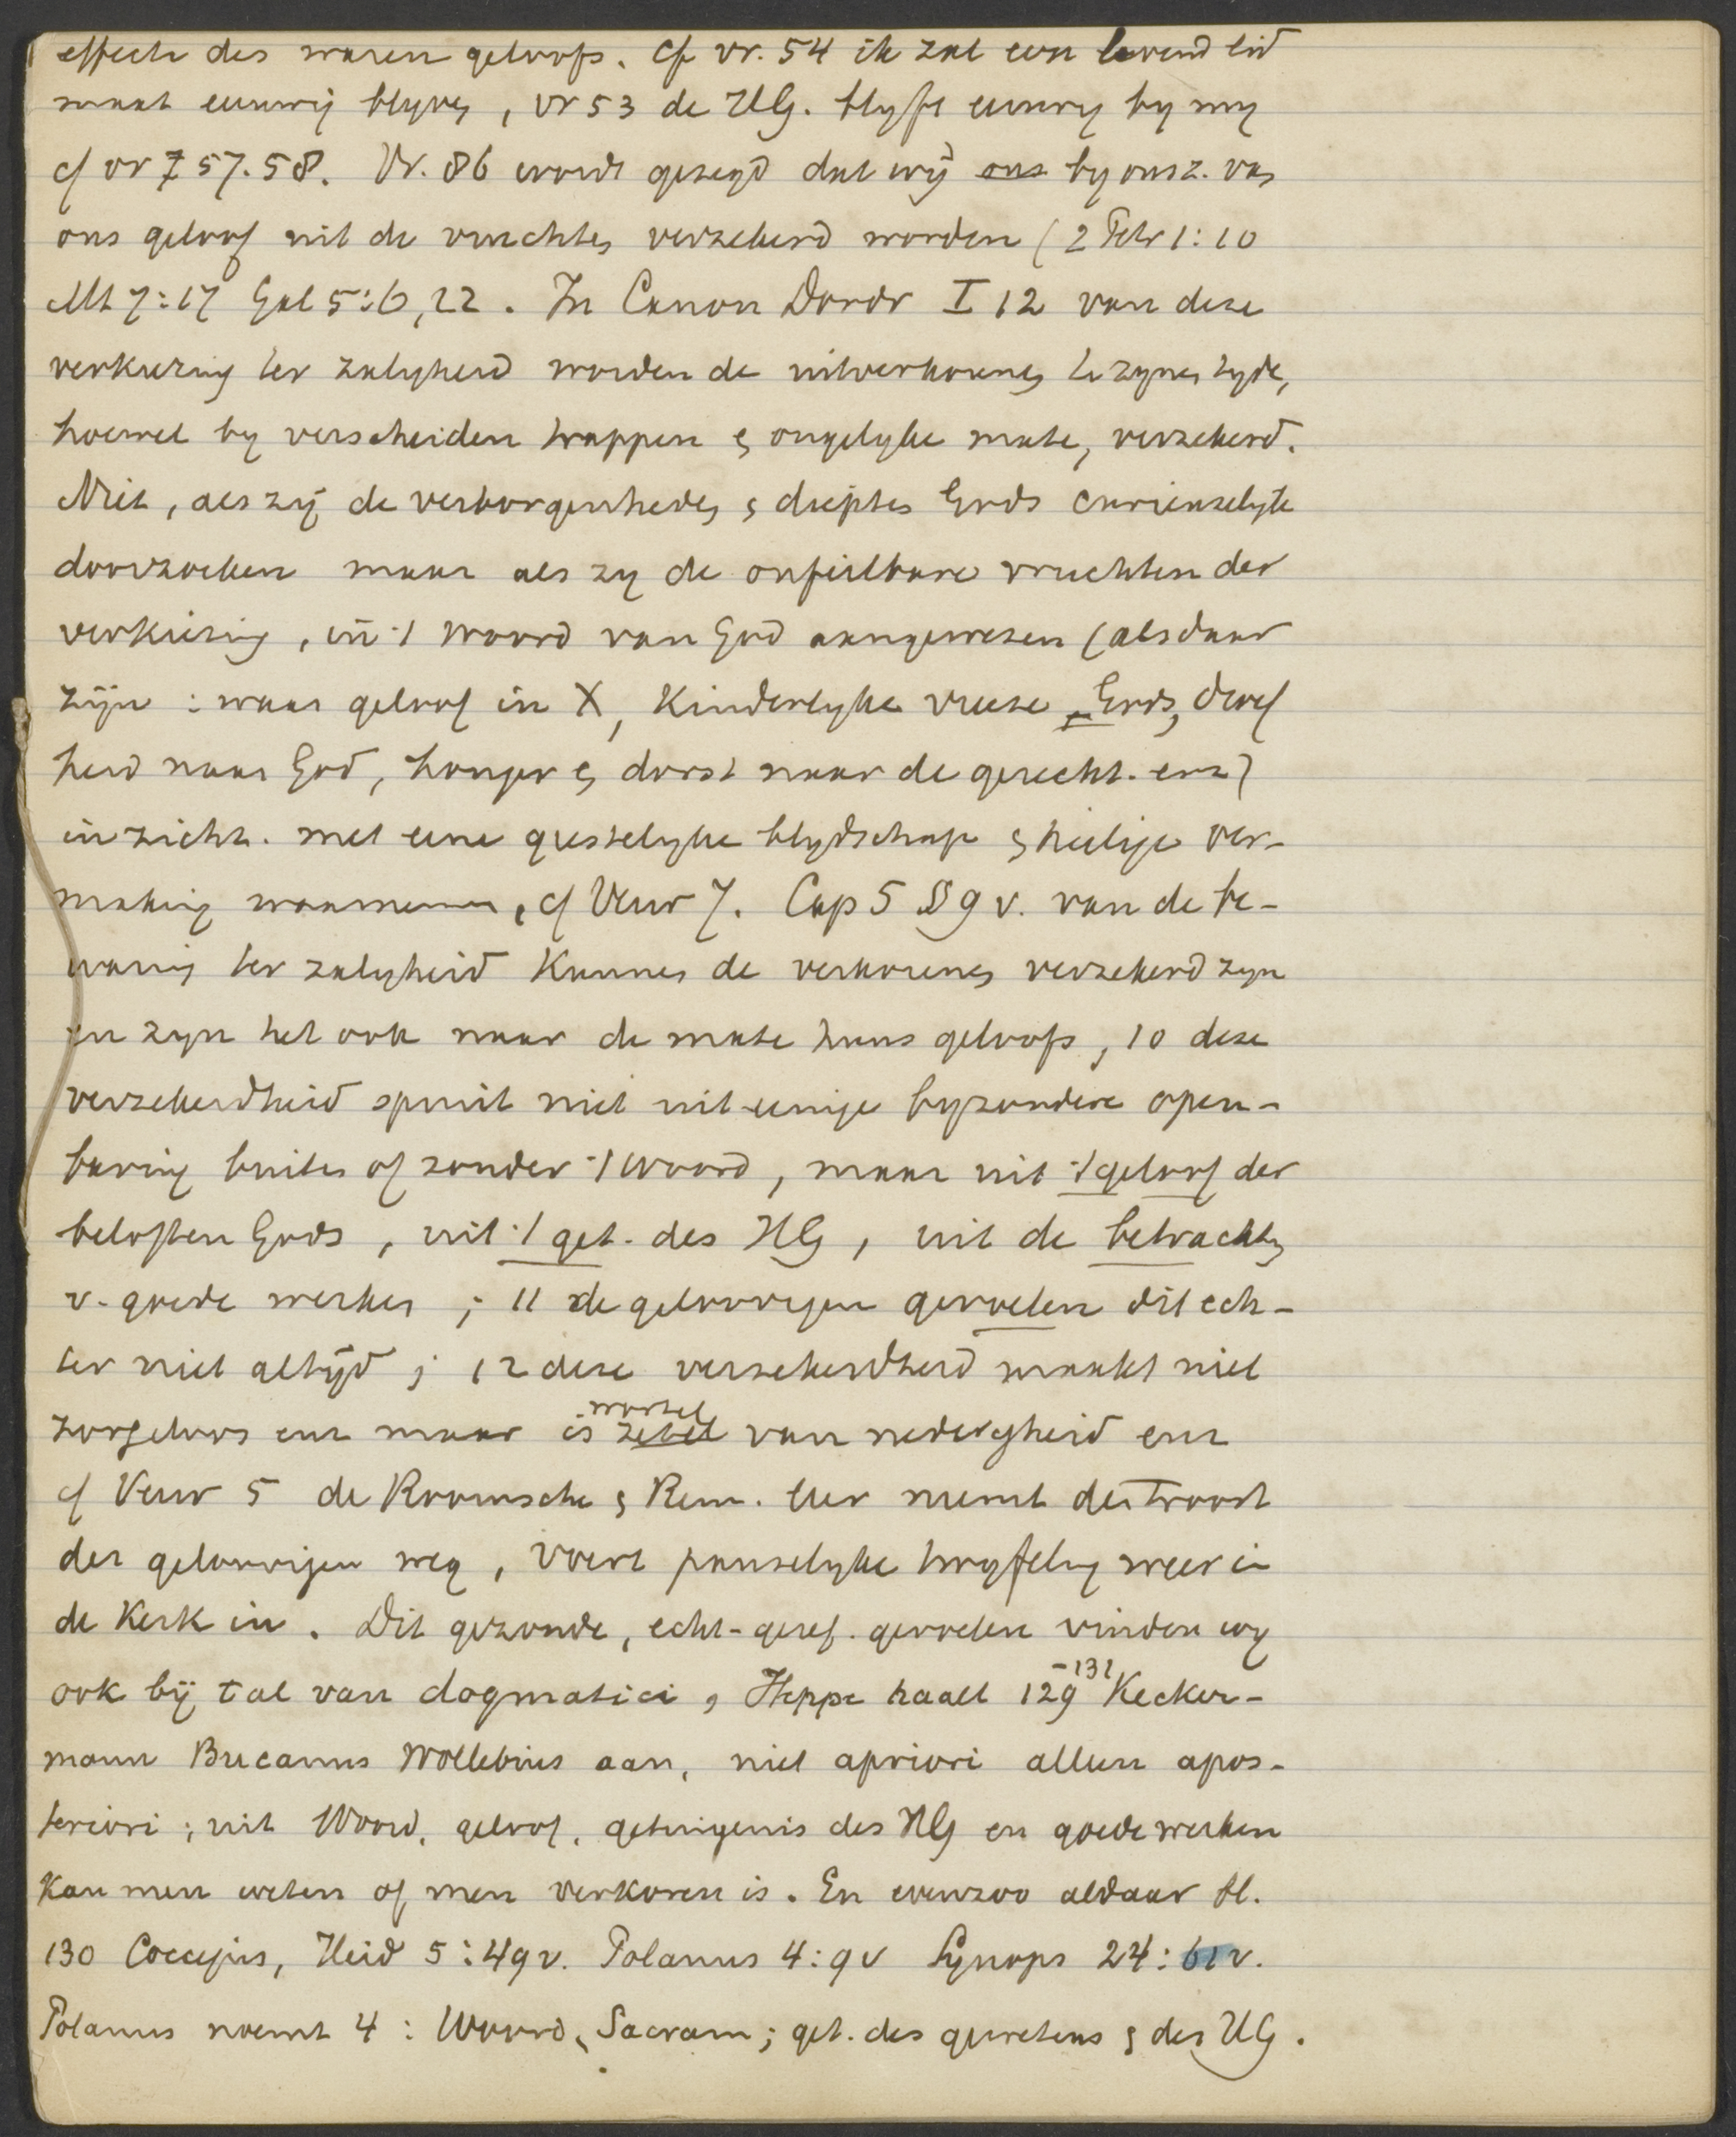 effecten des waren geloofs. Cf vr. 54 ik zal een levend lid
maat eeuwig blyven, vr 53 de HG. blyft eeuwig by my
cf vr 57. 58. Vr. 86 wordt gezegd dat wij ons by onsz. van
ons geloof uit de vruchten verzekerd worden (2 Petr 1:10
Mt 7:17 Gal 5:6,22. In Canon Dordr I 12 van deze
verkiezing ter zalygheid worden de uitverkorenen te zyner tyde,
hoewel by verscheiden trappen en ongelyke mate, verzekerd.
Niet, als zij de verborgenheden en diepten Gods curieuselyk
doorzoeken maar als zy de onfeilbare vruchten der
verkiezing, in 't woord van God aangewezen (als daar
zijn: waar geloof in X, Kinderlyke vreeze Gods, droef
heid naar God, honger en dorst naar de gerecht. enz)
in zichz. met eene geestelyke blydschap en heilige ver-
making waarnemen, cf Verw 7. Cap 5 § 9 v. van de be-
waring ter zalygheid Kunnen de verkorenen verzekerd zyn
en zyn het ook naar de mate huns geloofs, 10 deze
verzekerdheid spruit niet uit eenige byzondere open-
baring buiten of zonder 't Woord, maar uit 't geloof der
beloften Gods, uit 't get. des HG, uit de betrachtg
v. goede werken; 11 de geloovigen gevoelen dit ech-
ter niet altijd; 12 deze verzekerdheid maakt niet
zorgeloos enz maar is zetel wortel van nederigheid enz
cf Verw 5 de Roomsche en Rem. leer neemt den Troost
der geloovigen weg, voert pauselyke twyfeling weer in
de Kerk in. Dit gezonde, echt-geref. gevoelen vinden wy
ook bij tal van dogmatici, Heppe haalt 129-131 Kecker-
mann Bucanus Wollebius aan, niet apriori alleen apos-
teriori; uit Woord, geloof, getuigenis des HG en goede werken
Kan men weten of men verkoren is. En evenzoo aldaar bl.
130 Coccejus, Heid 5:49v. Polanus 4:9v Synops 24:61v.
Polanus noemt 4: Woord, Sacram; get. des gewetens en des HG.